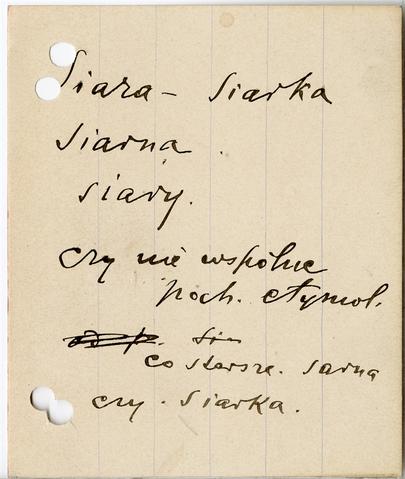 Siara – Siarka
Siarna.
Siary.
czy nie wspólne
poch. etymol.
co starsze. sarna
czy. Siarka.